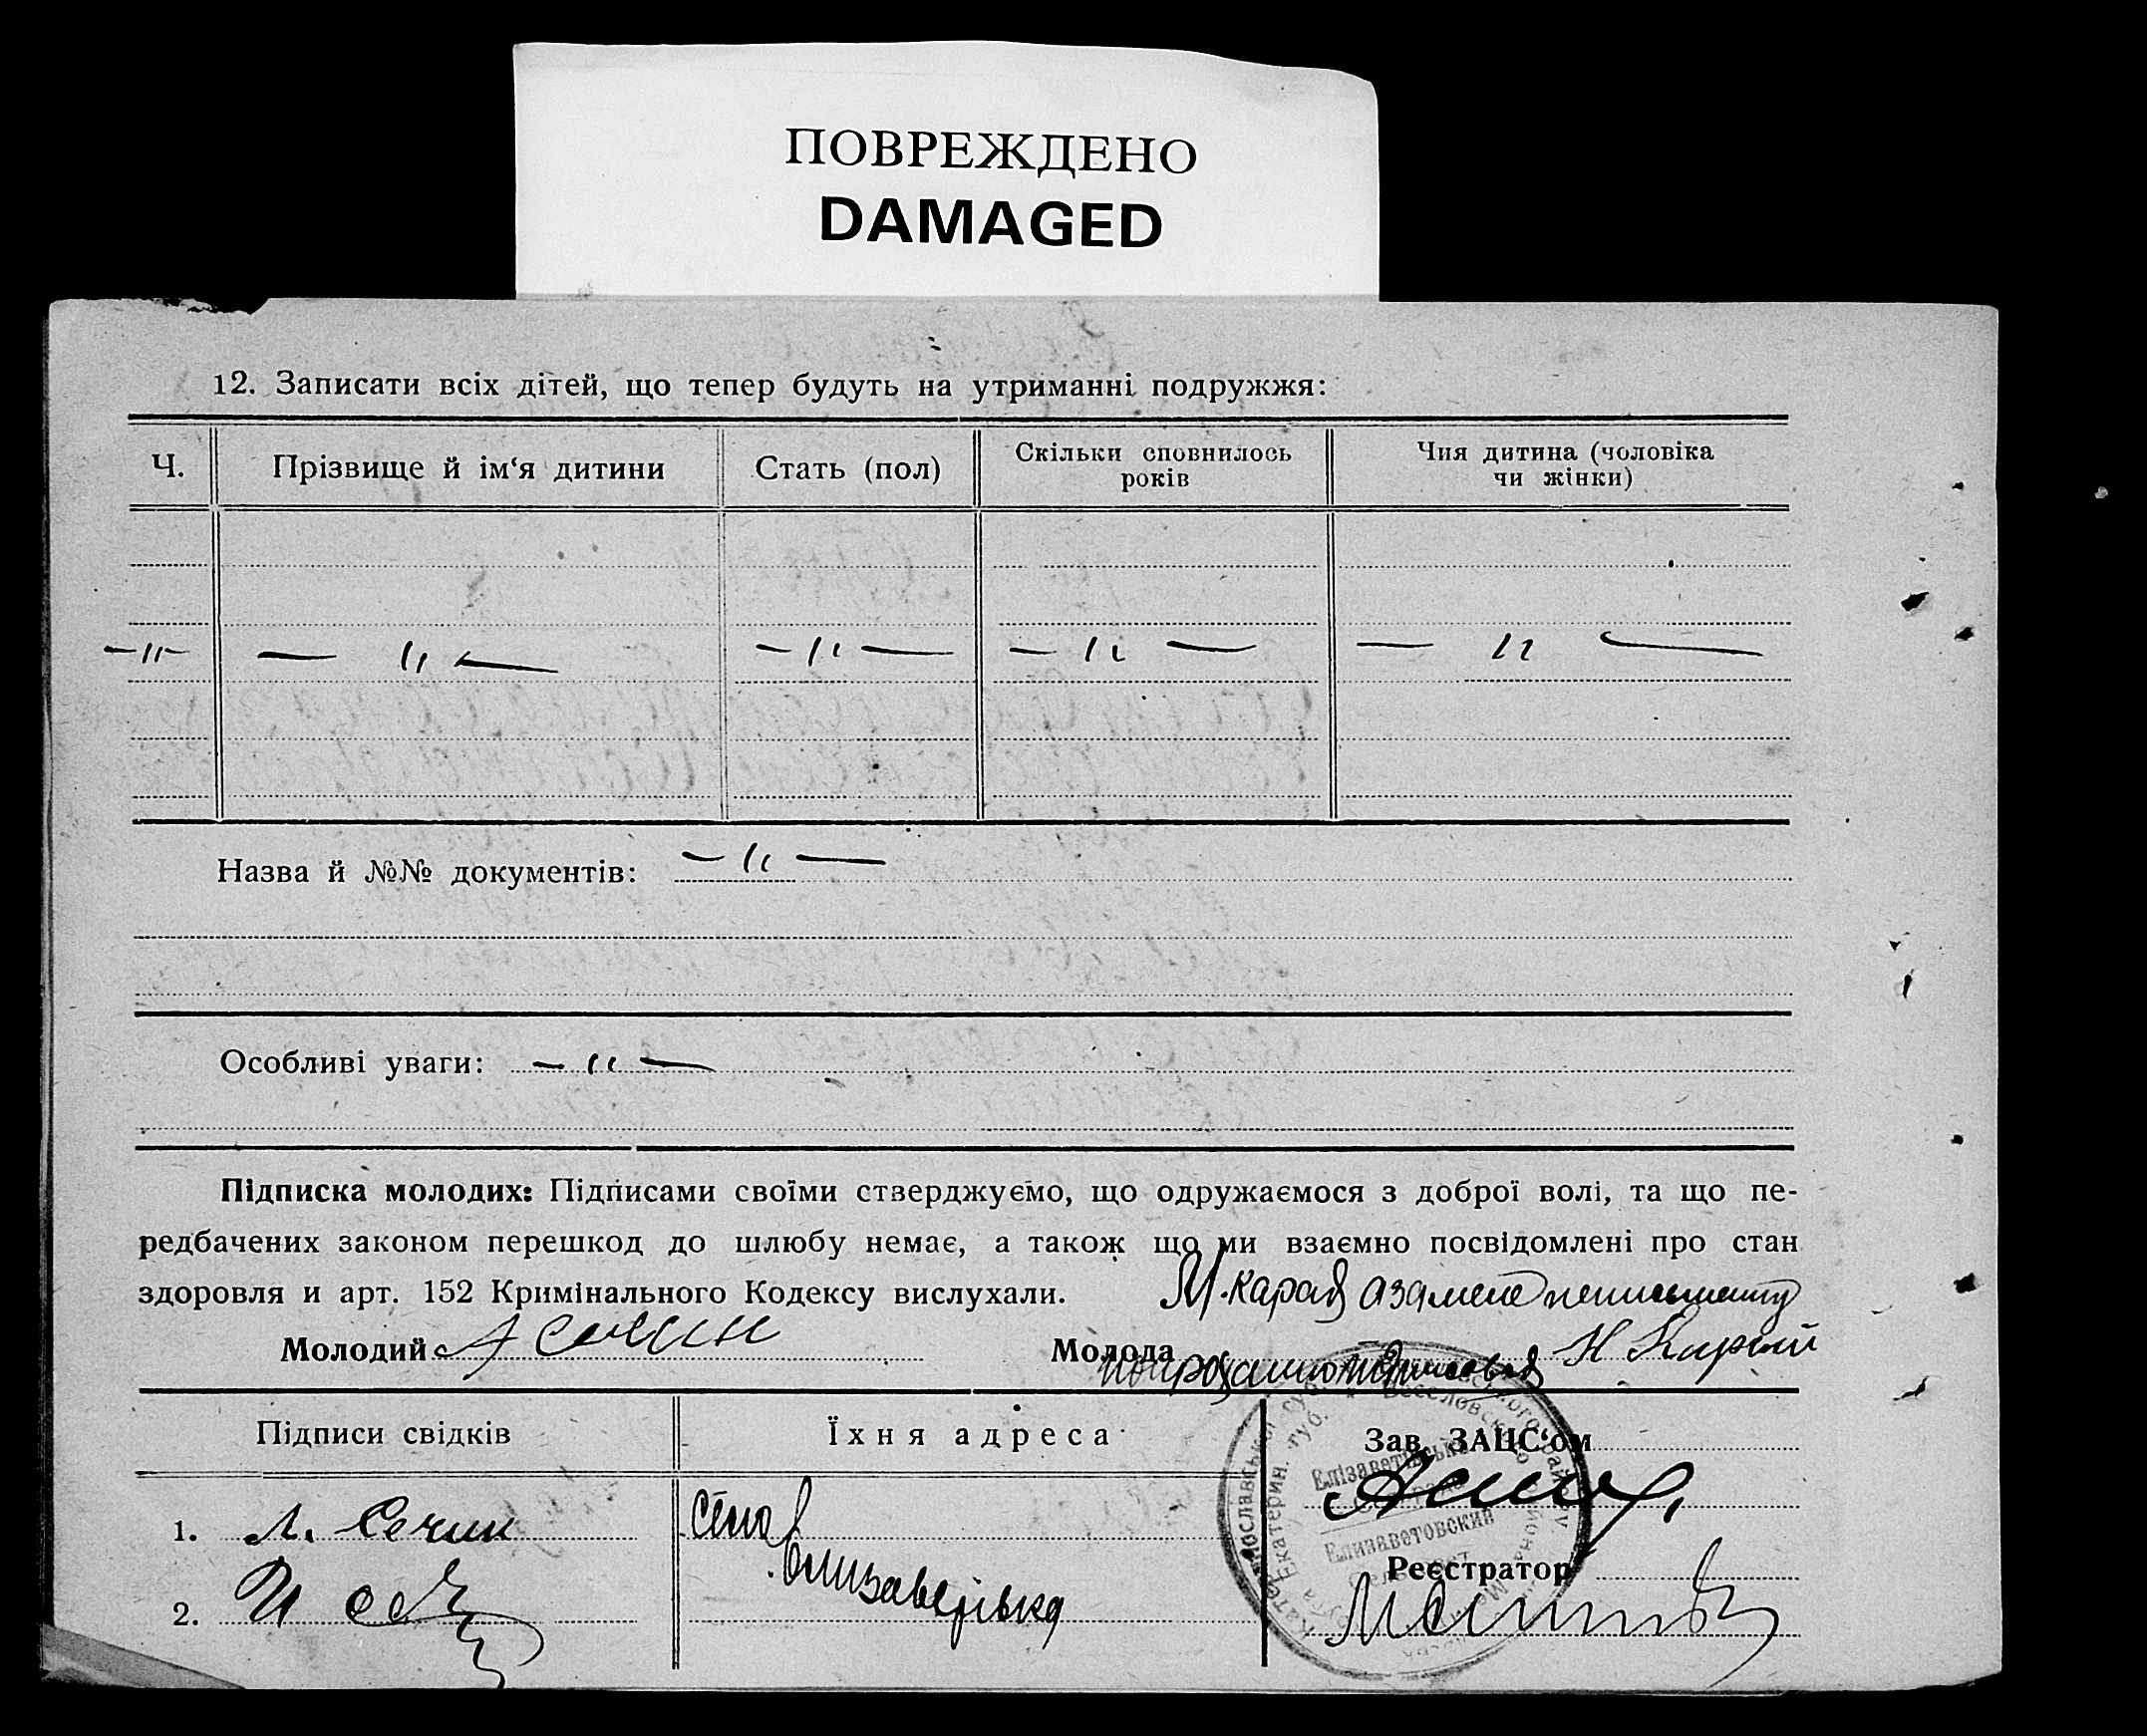 ПОВРЕЖДЕНО
DAMAGED
12. Записати всіх дітей, що тепер будуть на утриманні подружжя:
Ч. Прізвище й ім‘я дитини Стать (пол) Скільки сповнилось років Чия дитина (чоловіка чи жінки)
—〃— —〃— —〃— —〃— —〃—
Назва й №№ документів: —〃—
Особливі уваги: —〃—
Підписка молодих: Підписами своїми стверджуємо, що одружаємося з доброї волі, та що пе-
редбачених законом перешкод до шлюбу немає, а також що ми взаємно посвідомлені про стан
здоровля и арт. 152 Кримінального Кодексу вислухали.
М. Карай
Молодий Молода Н Карай
Підписи свідків Їхня адреса Зав. ЗАЦС‘ом
1. Л. Сечин село
Єлизаветівка
Реєстратор
2. И
Елізаветівська
Елизаветовский
Екатерин. губ.